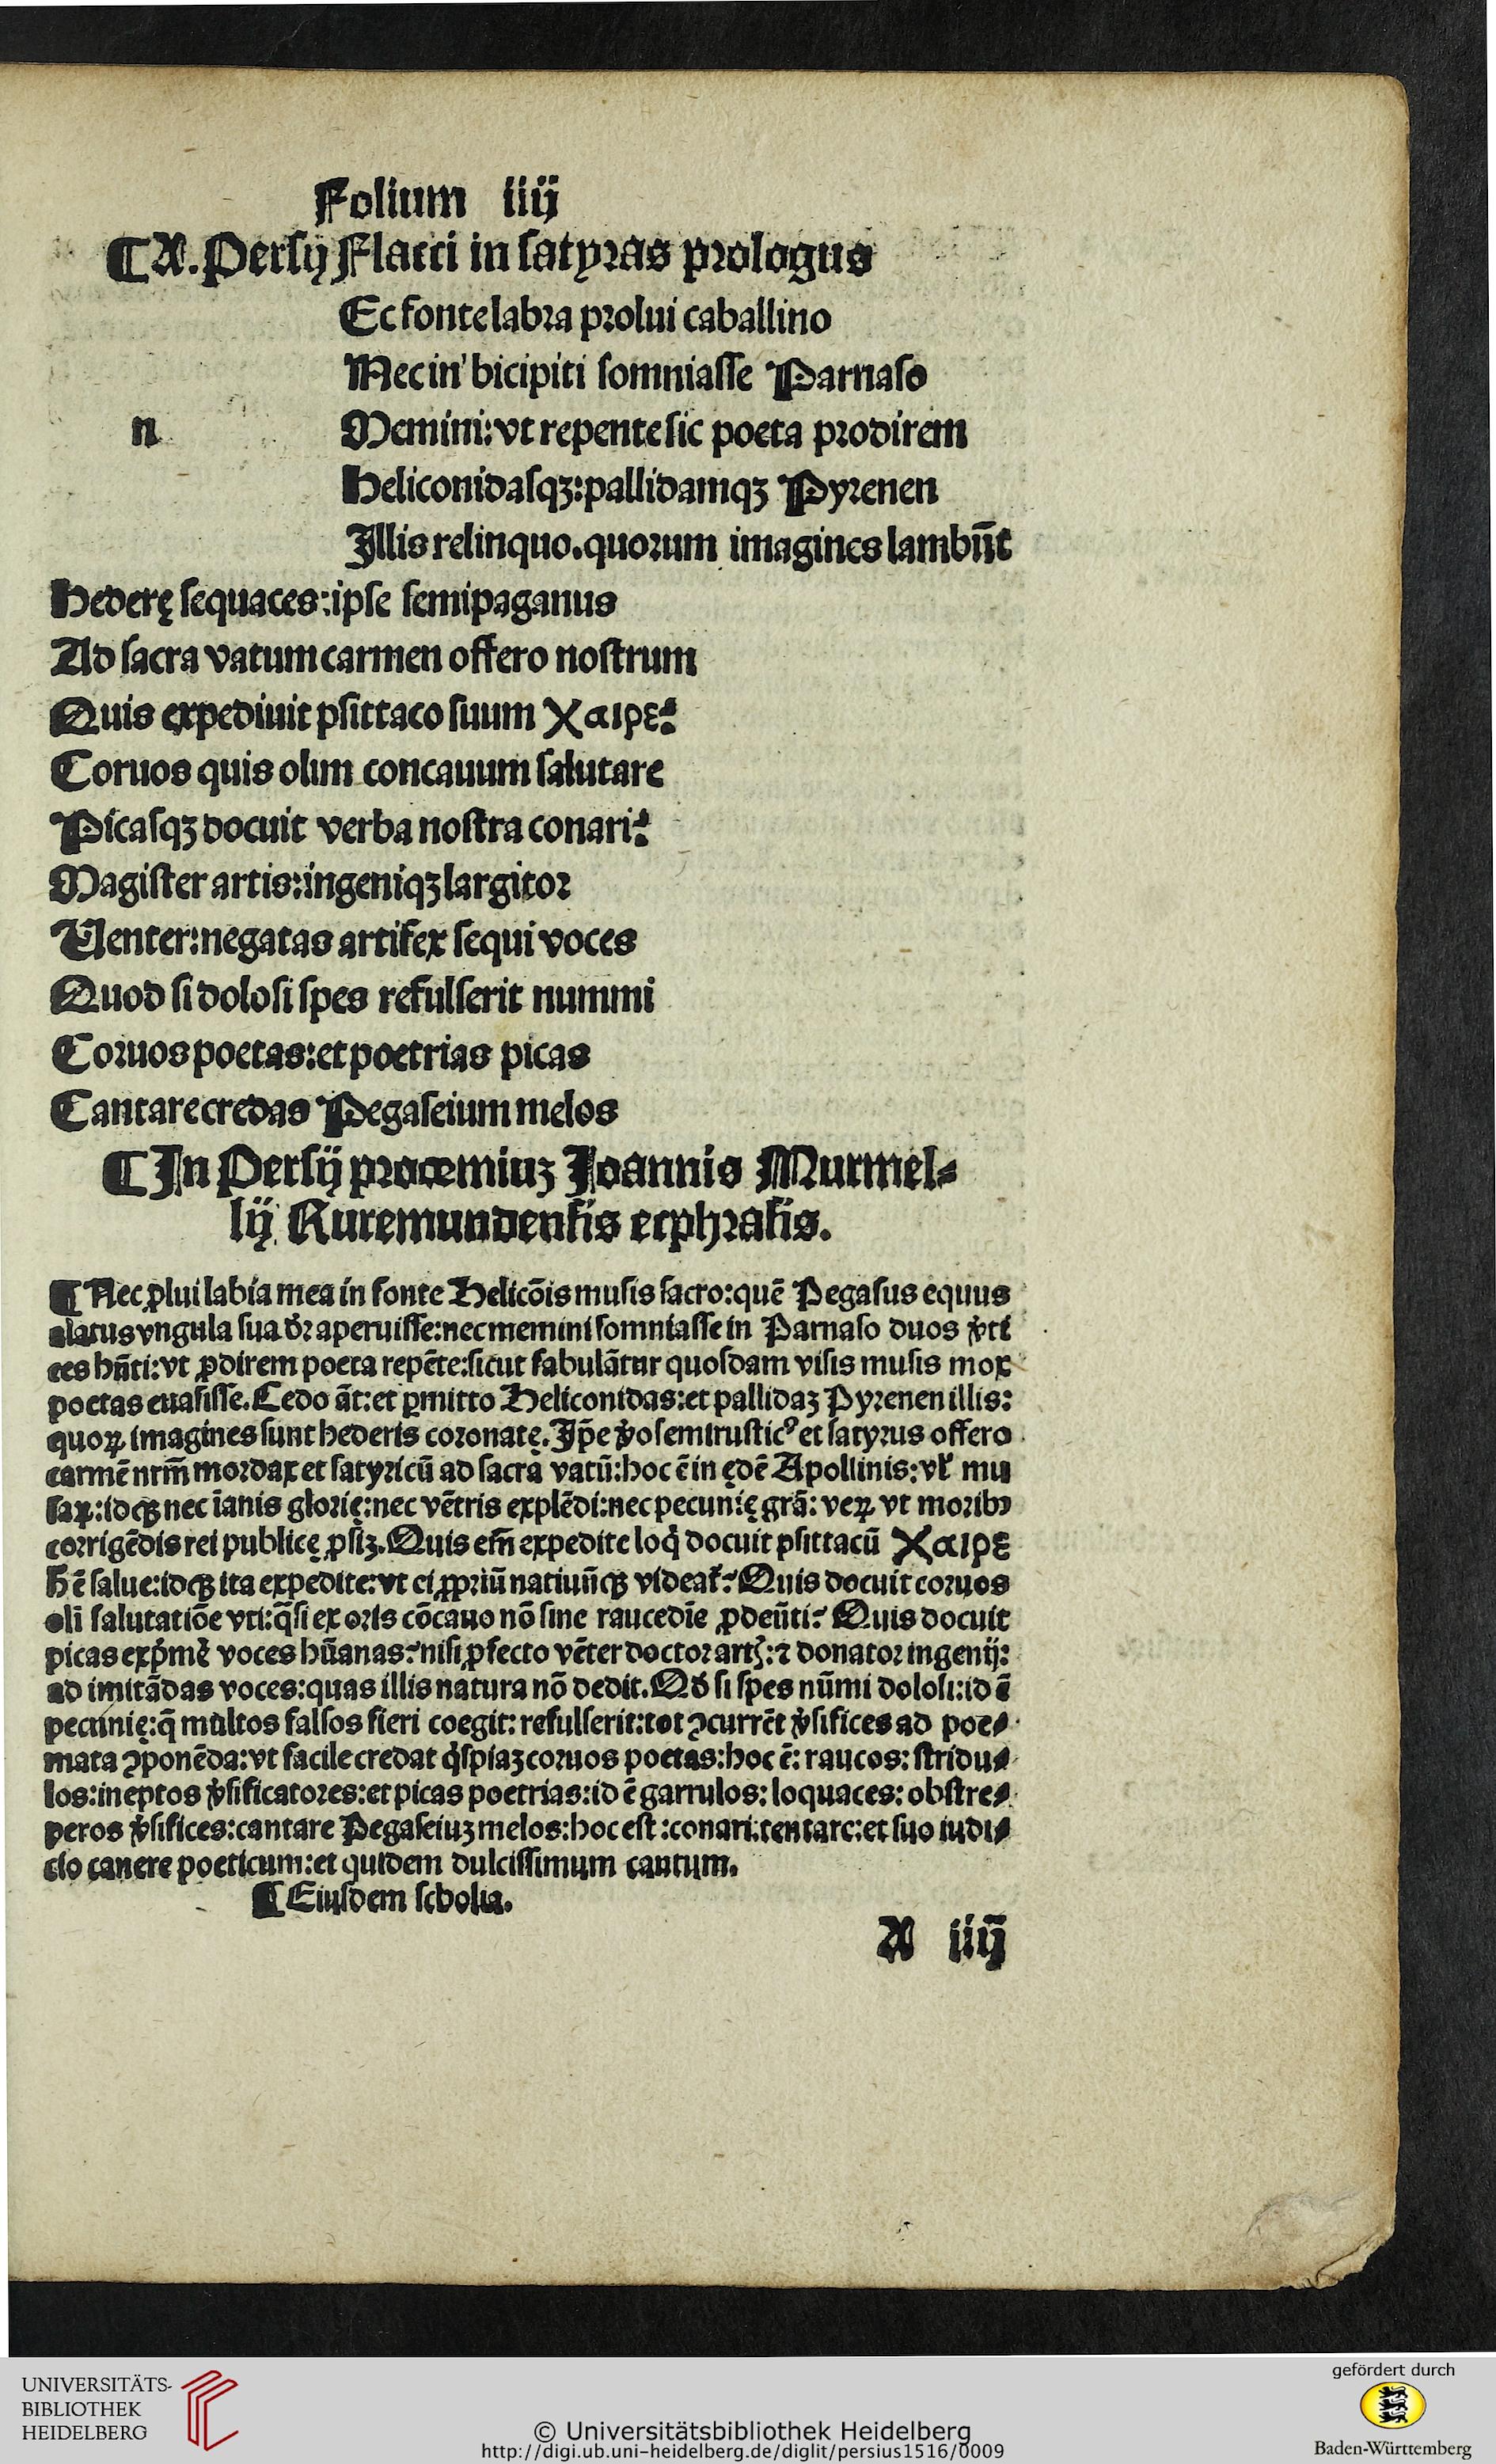 Folium iiij
¶A. Persij Flacci in satyras prologus
Ec fonte labra prolui caballino
Nec in bicipiti somniasse Parnaso
n
Memini: vt repente sic poeta prodirem
Heliconidasqꝫ: pallidamqꝫ Pyrenen
Illis relinquo. quorum imagines lambūt
Hederę sequaces: ipse semipaganus
Ad sacra vatum carmen offero nostrum
Quis expediuit psittaco suum Χαιρε?
Coruos quis olim concauum salutare
Picasqꝫ docuit verba nostra conari?
Magister artis: ingeniqꝫ largitor
Uenter: negatas artifex sequi voces
Quod si dolosi spes refulserit nummi
Coruos poetas: et poetrias picas
Cantare credas Pegaseium melos
¶In Persij proœmiuꝫ Joannis Murmel⸗
lij Ruremundensis ecphrasis.
¶Nec ꝓlui labia mea in fonte Helicōis musis sacro: quē Pegasus equus
alatus vngula sua dr̄ aperuisse: nec memini somniasse in Parnaso duos v̓ti
ces hn̄ti: vt ꝓdirem poeta repēte: sicut fabulātur quosdam visis musis mox
poetas euasisse. Cedo āt: et ꝑmitto Heliconidas: et pallidaꝫ Pyrenen illis:
quoꝝ imagines sunt hederis coronatę. Ip̄e v̓o semirusticꝰ et satyrus offero
carmē nrm̄ mordax et satyricū ad sacra vatū: hoc ē in ędē Apollinis: vl̓ mu
saꝝ: idqꝫ nec īanis glorię: nec vētris explēdi: nec pecunię grā: veꝝ vt moribꝰ
corrigēdis rei publicę ꝓsiꝫ. Quis em̄ expedite loq̓ docuit psittacū Χαιρε
h̄ ē salue: idqꝫ ita expedite: vt ei ꝓpriū natiuūqꝫ videat̓? Quis docuit coruos
oli salutatiōe vti: q̄si ex oris cōcauo nō sine raucedīe ꝓdeūti? Quis docuit
picas exp̓mē voces hūanas? nisi ꝓfecto vēter doctor artꝭ: ⁊ donator ingenij:
ad imitādas voces: quas illis natura nō dedit. Qd̓ si spes nūmi dolosi: id ē
pecunię: q̄ multos falsos fieri coegit: refulserit: tot ꝯcurrēt v̓sifices ad poe⸗
mata ꝯponēda: vt facile credat q̓spiaꝫ coruos poetas: hoc ē: raucos: stridu⸗
los: ineptos v̓sificatores: et picas poetrias: id ē garrulos: loquaces: obstre⸗
peros v̓sifices: cantare Pegaseiuꝫ melos: hoc est: conari: tentare: et suo iudi⸗
cio canere poeticum: et quidem dulcissimum cantum.
¶Eiusdem scholia.
A iiij
UNIVERSITÄTS-
BIBLIOTHEK
HEIDELBERG
© Universitätsbibliothek Heidelberg
http://digi.ub.uni-heidelberg.de/diglit/persius1516/0009
gefördert durch
Baden-Württemberg